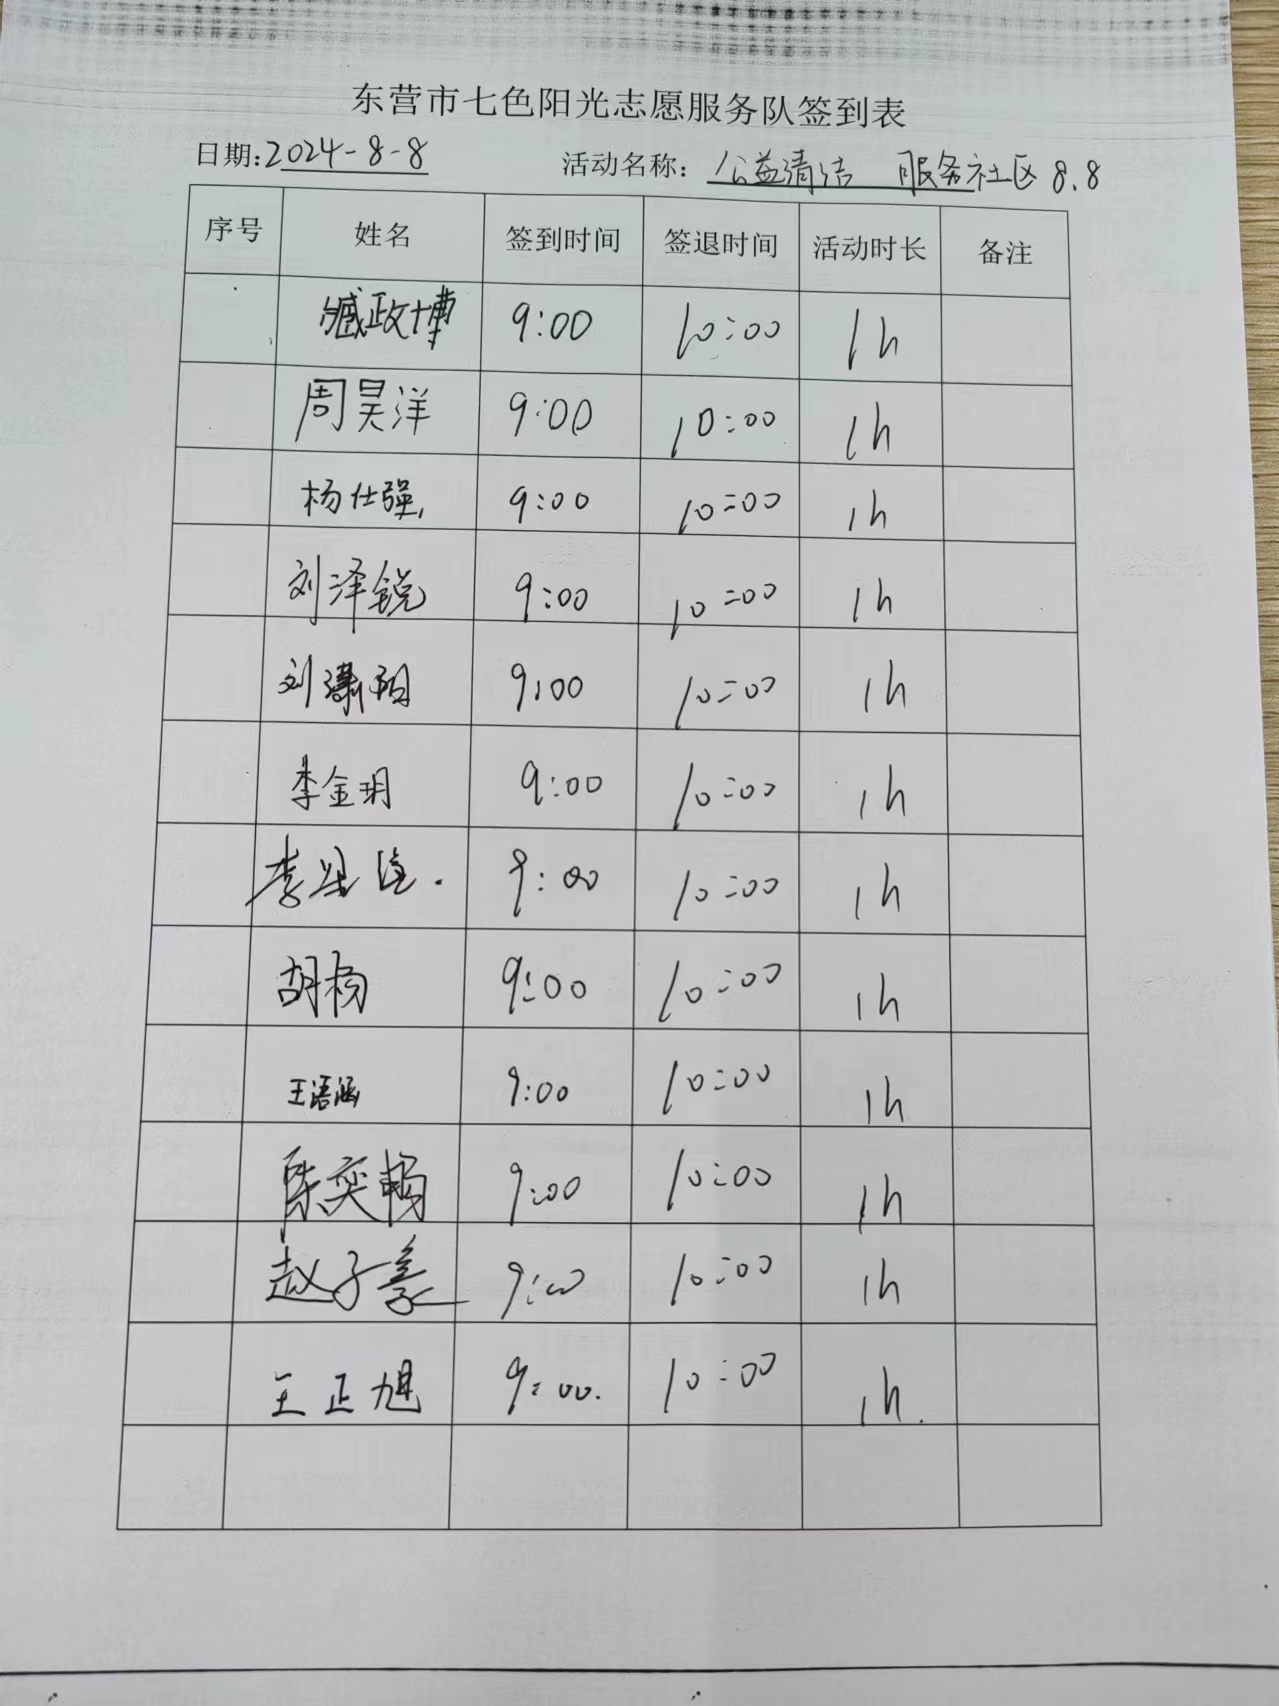 东营市七色阳光志愿服务队签到表
日期:2024-8-8 活动名称: 公益清洁 服务社区 8.8
序号 姓名 签到时间 签退时间 活动时长 备注
臧政博 9:00 10:00 1h
周昊洋 9:00 10:00 1h
杨仕强 9:00 10:00 1h
刘泽锐 9:00 10:00 1h
刘潇阳 9:00 10:00 1h
李金玥 9:00 10:00 1h
李 9:00 10:00 1h
胡杨 9:00 10:00 1h
王语涵 9:00 10:00 1h
陈奕畅 9:00 10:00 1h
赵子豪 9:00 10:00 1h
王正旭 9:00. 10:00 1h.